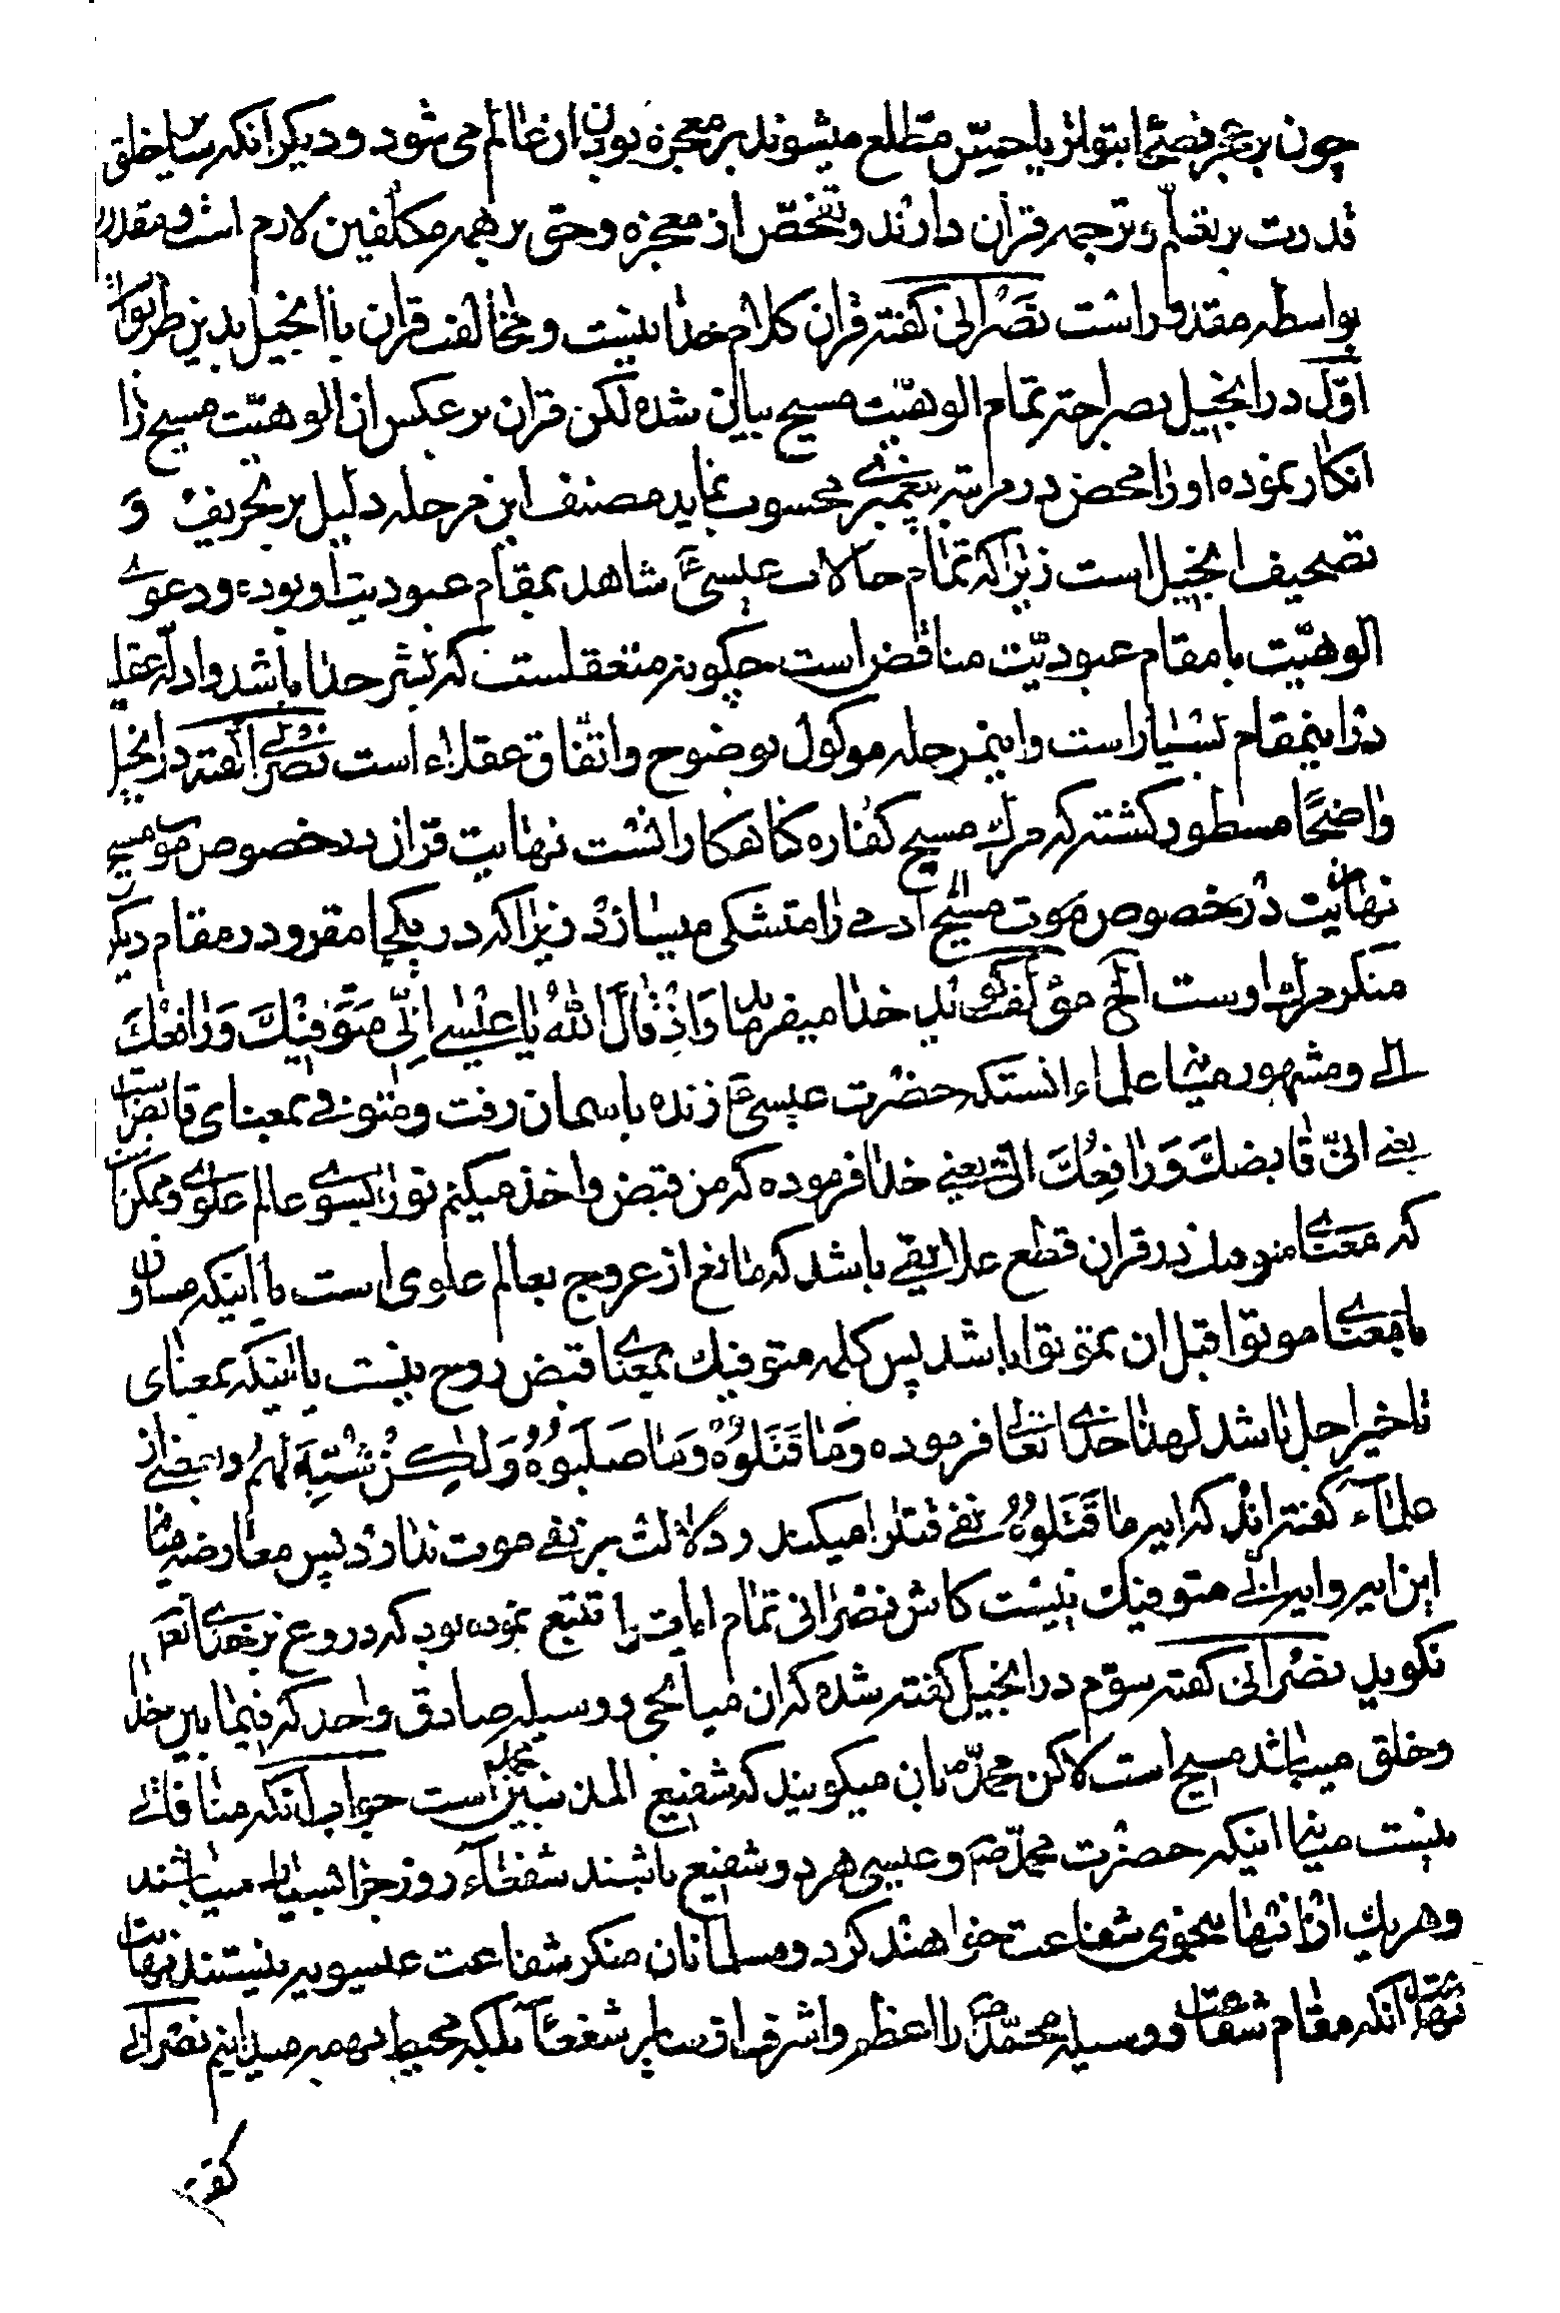 چون بر عجز فصحا بتواتر یا حس مطلع میشوند بر معجزه بودن ان عالم می شود و دیگر انکه سایر خلق
قدرت بر تعلم و ترجمه قران دارند و تفحص از معجزه و حق بر همه مکلفین لازم است و مقدور
بواسطه مقدور است نصرانی گفته قران کلام خدا نیست و مخالفت قران با انجیل بدین طریق
اول در انجیل بصراحة تمام الوهیت مسیح بیان شده لکن قران بر عکس ان الوهیت مسیح را
انکار نموده او را محض در مرتبه پیغمبری محسوب نماید مصنف این مرحله دلیل بر تحریف و
تصحیف انجیل است زیرا که تمام حالات عیسی ع شاهد بمقام عبودیت او بوده و دعوی
الوهیت با مقام عبودیت مناقض است چگونه متعقلست که بشر خدا باشد و ادله عقلیه
در اینمقام بسیار است و اینمرحله موکول بوضوح و اتفاق عقلاء است نصرانی گفته در انجیل
واضحا مسطور گشته که مرگ مسیح کفاره گناهکارانست نهایت قران در خصوص موت مسیح
نهایت در خصوص موت مسیح آدمی را متشکی میسازد زیرا که در یکجا مقر و در مقام دیگر
منکر مرگ اوست الخ مؤلف گوید خدا میفرماید وَاِذْ قَالَ اللهُ یَا عیسی اِنّی مُتَوَفّیكَ وَرَافِعُكَ
الی و مشهور میان علماء انستکه حضرت عیسی ع زنده باسمان رفت و متوفی بمعنای قابض است
یعنی انی قابضك وَرَافِعُكَ الی یعنی خدا فرموده که من قبض و اخذ میکنم تو را بسوی عالم علوی و ممکن است
که معنای متوفیك در قران قطع علایقی باشد که مانع از عروج بعالم علوی است یا اینکه مساوق
با معنای موتوا قبل ان تموتوا باشد پس کلمه متوفیك بمعنای قبض روح نیست یا اینکه بمعنای
تاخیر اجل باشد لهذا خدای تعالی فرموده وَمَا قَتَلُوهُ وَمَا صَلَبُوهُ وَلٰكِنْ شُبِّهَ لَهُمْ و بعضی از
علماء گفته اند که ایه ما قَتَلُوهُ نفی قتل را میکند و دلالت بر نفی موت ندارد پس معارضه میان
این ایه و ایه انی متوفیك نیست کاش نصرانی تمام ایات را تتبع نموده بود که دروغ بر خدای تعالی
نگوید نصرانی گفته سوم در انجیل گفته شده که ان میانجی و وسیله صادق واحد که فیما بین خدا
و خلق میباشد مسیح است لاکن محمدیان میگویند که شفیع المذنبین محمد است جواب انکه منافاتی
نیست میان اینکه حضرت محمد ص و عیسی هر دو شفیع باشند شفعاء روز جزا بسیار میباشند
و هریك از انها بنحوی شفاعت خواهند کرد و مسلمانان منکر شفاعت عیسویه نیستند نهایت
انکه مقام شفاعت و وسیله محمد ص را اعظم و اشرف از سایر شفعاء بلکه محیط بهمه میدانیم نصرانی
گفته